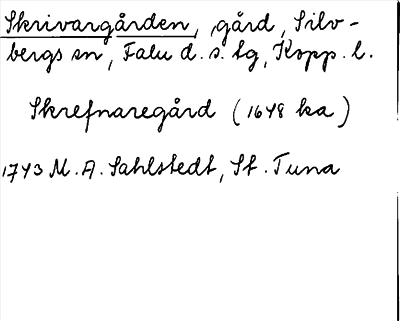 Skrivargården, gård, Silv-
bergs sn, Falu d. s. lg, Kopp. l.
Skrefnaregård (1648 ka)
1743 M. A. Sahlstedt, St. Tuna